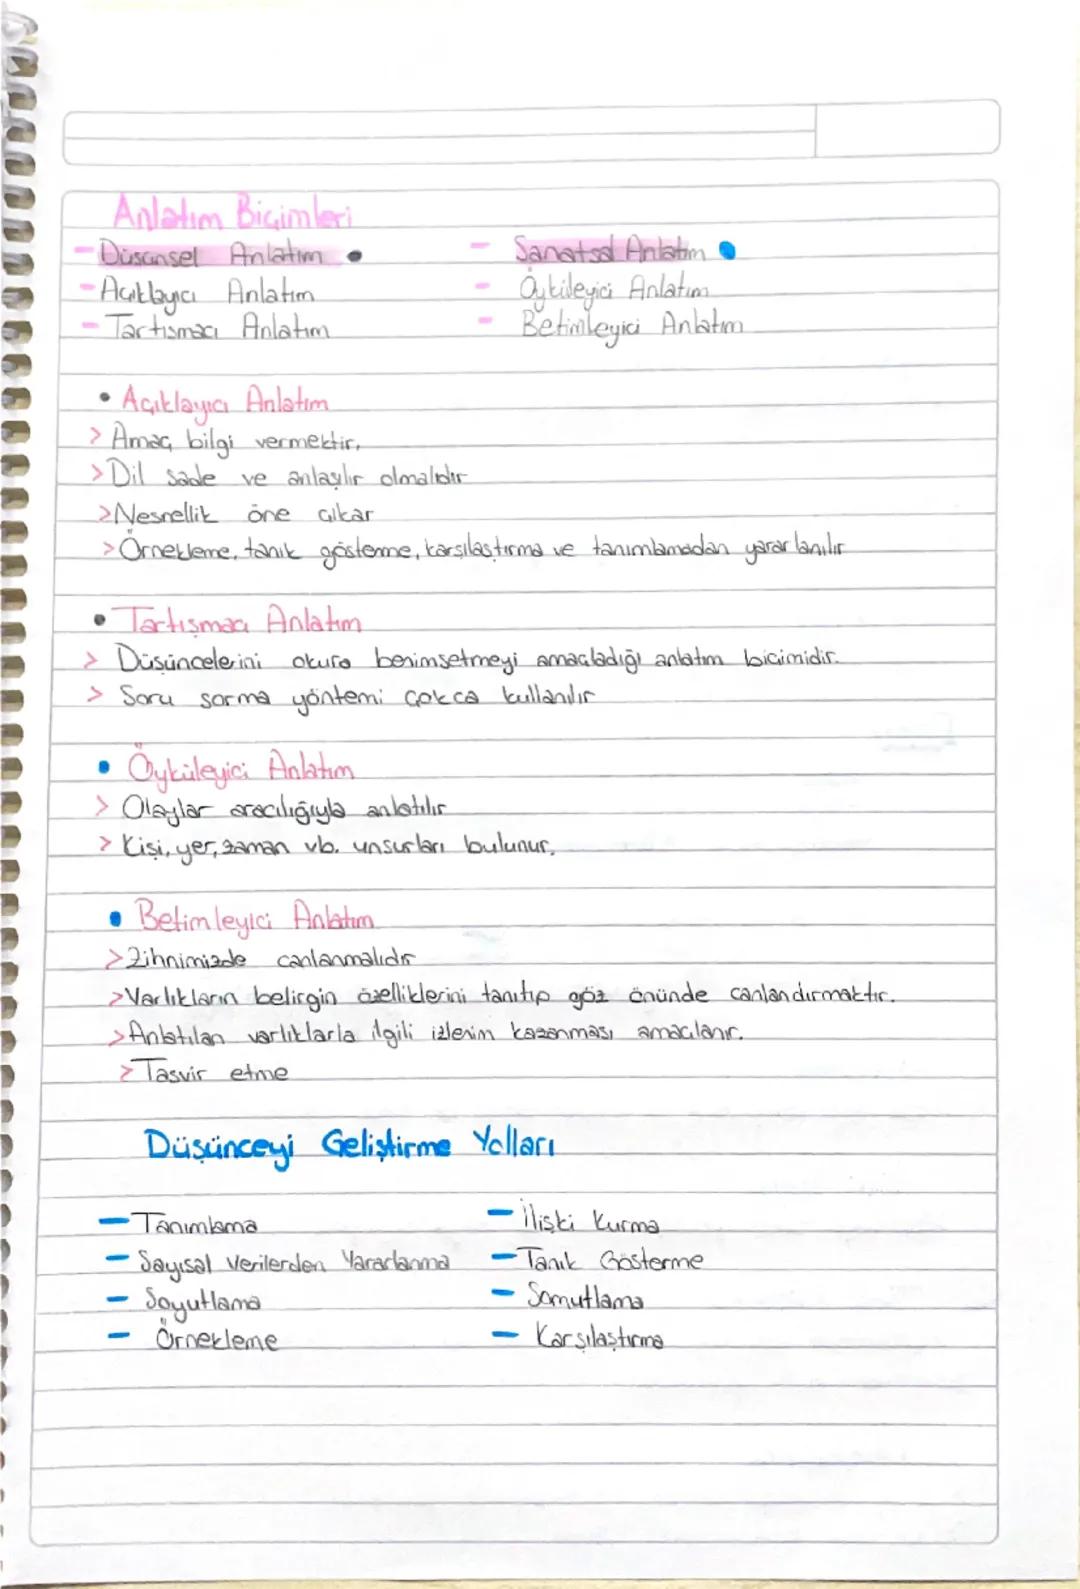 Anlatım Biçimleri
- Düşünsel Anlatım •
- Açıklayıcı Anlatım
- Tartışmacı Anlatım
- Sanatsal Anlatım •
- Öyküleyici Anlatım
- Betimleyici Anlatım
• Açıklayıcı Anlatım
> Amaç bilgi vermektir.
> Dil sade ve anlaşılır olmalıdır
> Nesnellik öne çıkar
> Örnekleme, tanık gösterme, karşılaştırma ve tanımlamadan yararlanılır
• Tartışmacı Anlatım
> Düşüncelerini okura benimsetmeyi amaçladığı anlatım biçimidir.
> Soru sorma yöntemi çokca kullanılır
• Öyküleyici Anlatım
> Olaylar aracılığıyla anlatılır
> Kişi, yer, zaman vb. unsurları bulunur.
• Betimleyici Anlatım
> Zihnimizde canlanmalıdır
> Varlıkların belirgin özelliklerini tanıtıp göz önünde canlandırmaktır.
> Anlatılan varlıklarla ilgili izlenim kazanması amaçlanır.
> Tasvir etme
Düşünceyi Geliştirme Yolları
- Tanımlama
- Sayısal Verilerden Yararlanma
- Soyutlama
- Örnekleme
- İlişki Kurma
- Tanık Gösterme
- Somutlama
- Karşılaştırma